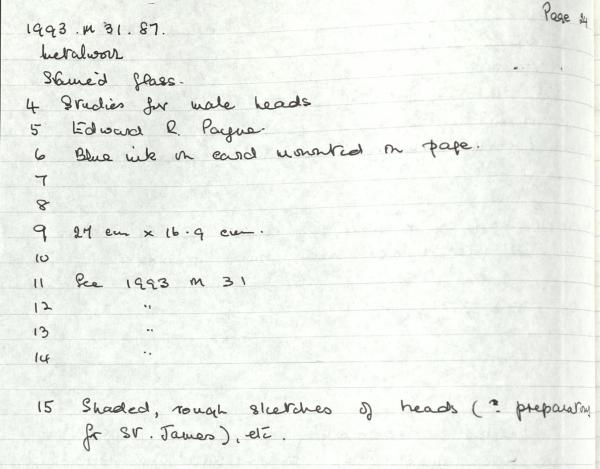 Page 24
1993 . m 31 . 87.
Metalwork
Stained glass.
4 Studies for male heads
5 Edward R. Payne.
6 Blue ink on card mounted on page.
7
8
9 27 cm x 16.9 cm.
10
11 See 1993 m 31
12 "
13 "
14 "
15 Shaded, rough sketches of heads (? preparatory
for St. James), etc.